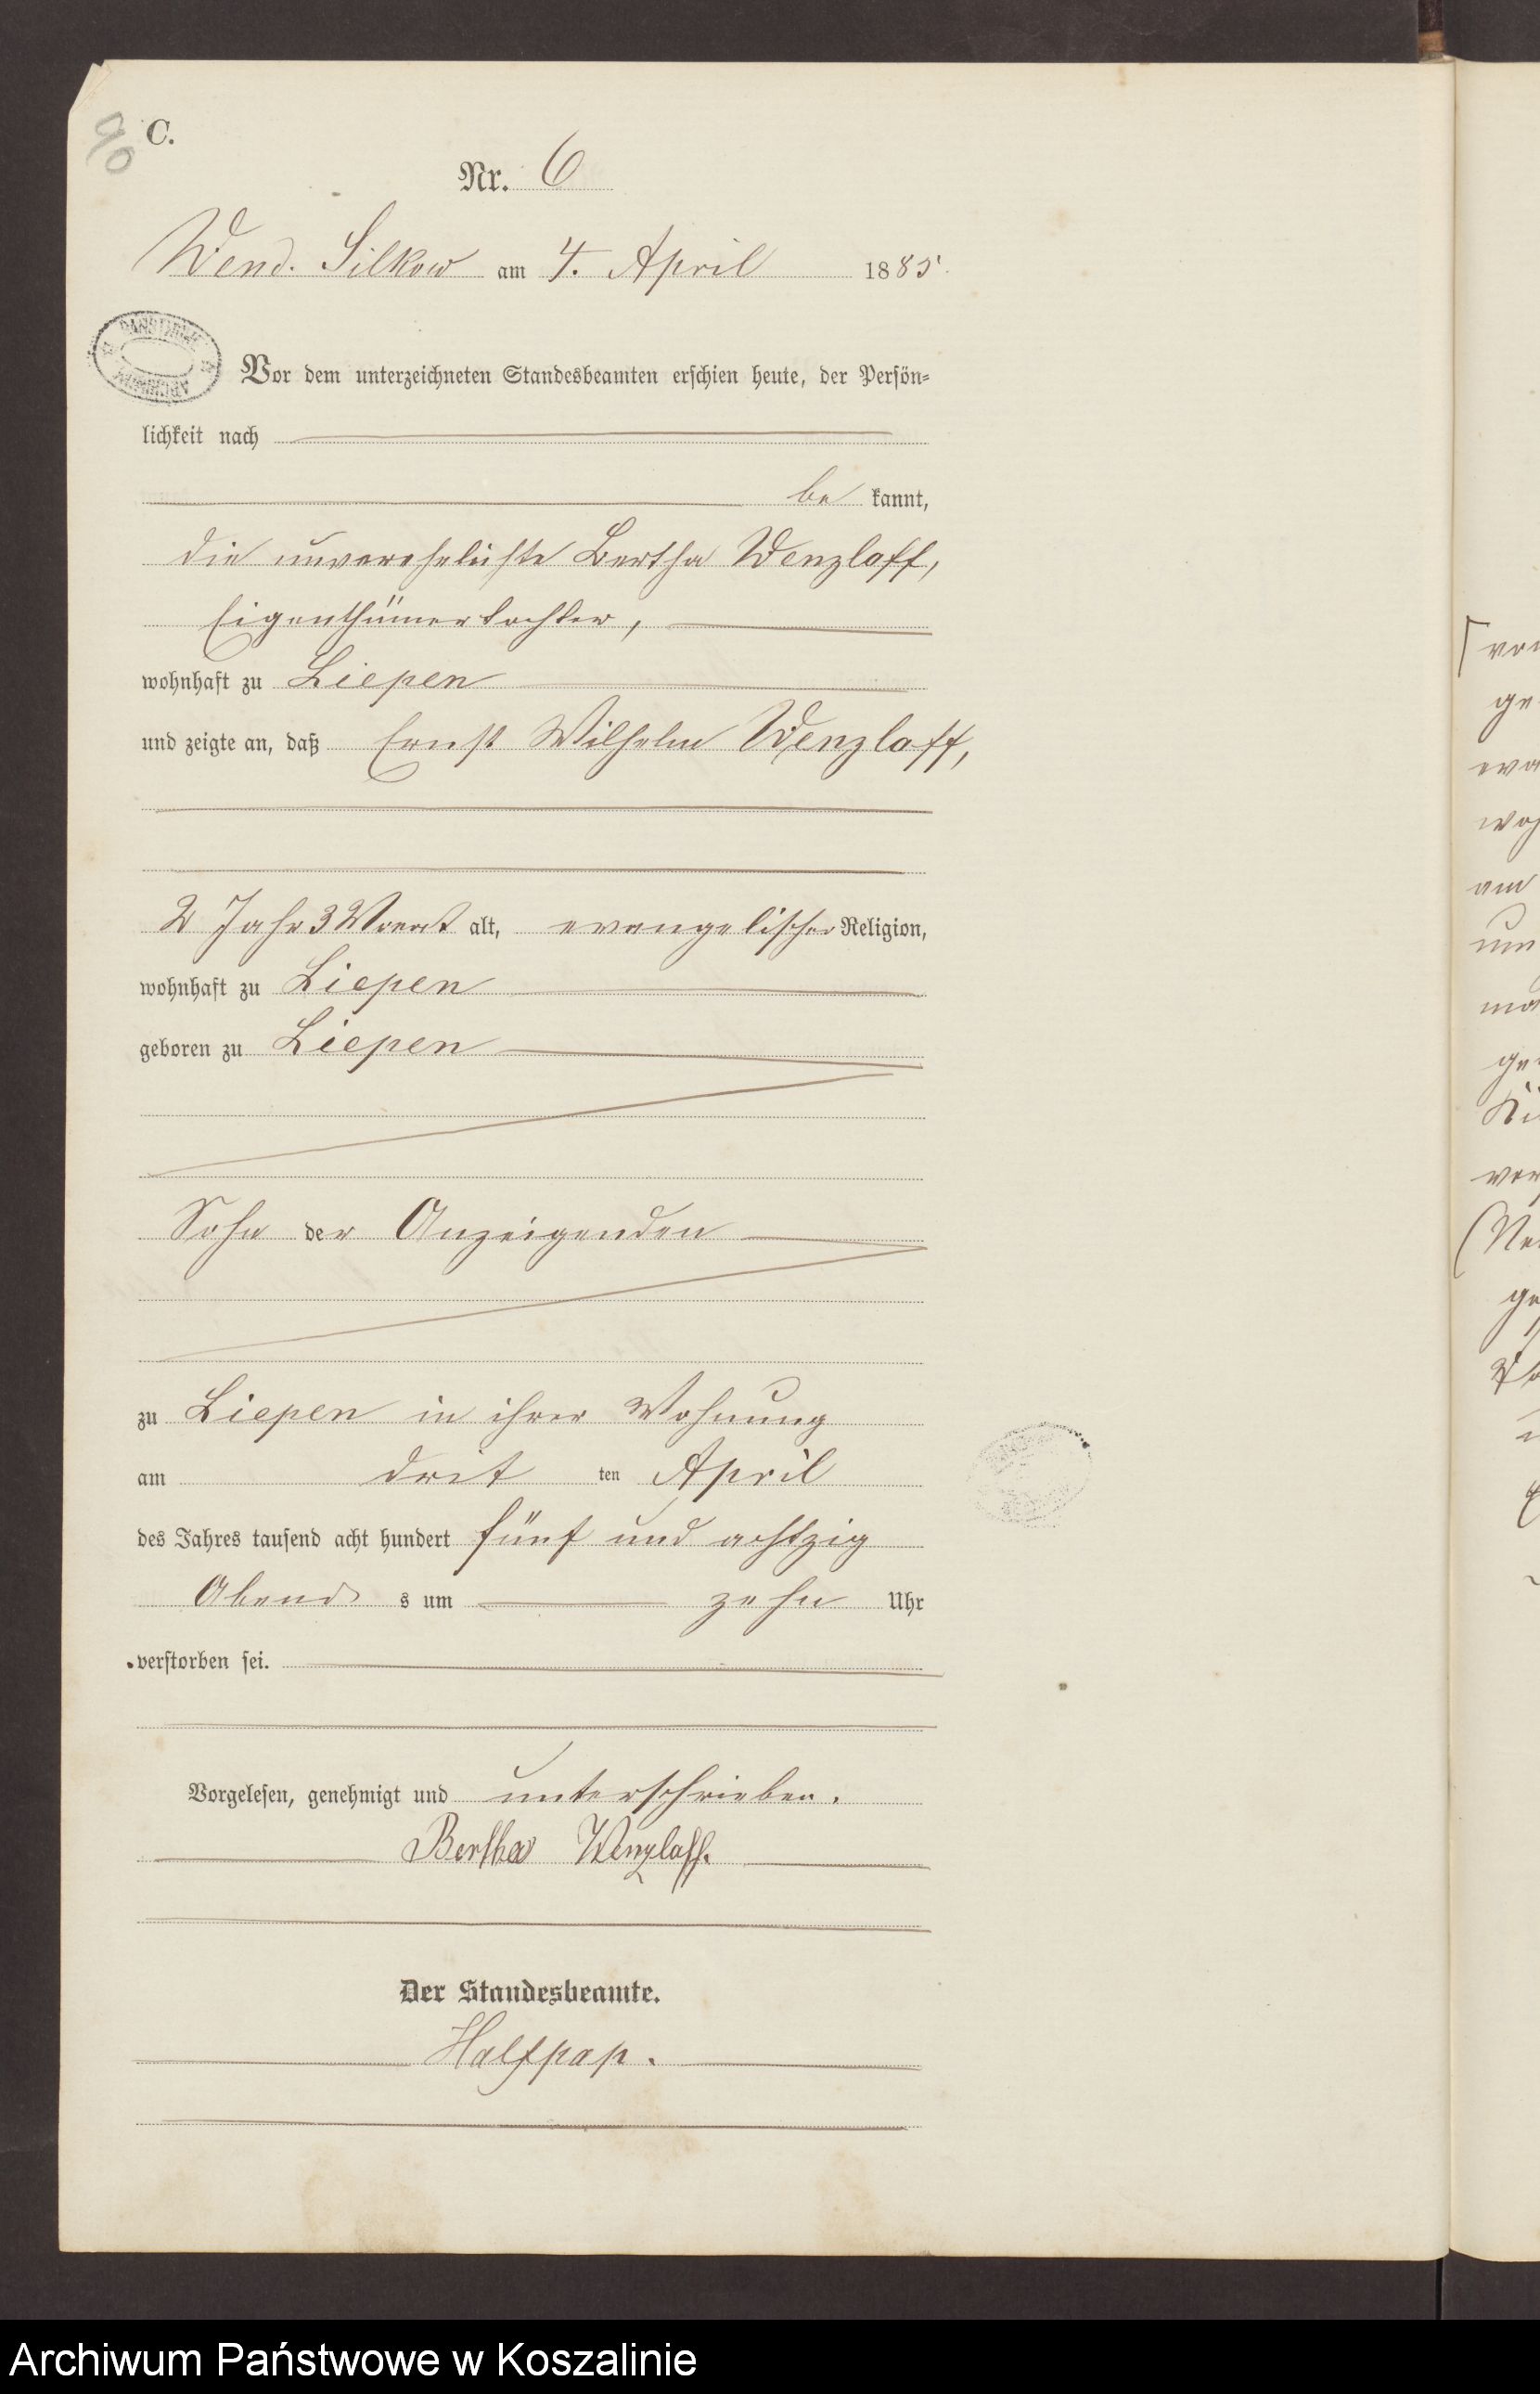 90
C.
Nr. 6
Wend. Silkow am 4. April 1885.
Vor dem unterzeichneten Standesbeamten erschien heute, der Persön-
lichkeit nach
be kannt,
die unverehelichte Bertha Wenzlaff,
Eigenthümertochter,
wohnhaft zu Liepen
und zeigte an, daß Ernst Wilhelm Wenzlaff,
2 Jahr 3 Monat alt, evangelischer Religion,
wohnhaft zu Liepen
geboren zu Liepen
Sohn der Anzeigenden
zu Liepen in ihrer Wohnung
am drit ten April
des Jahres tausend acht hundert fünf und achtzig
Abend s um zehn Uhr
verstorben sei.
Vorgelesen, genehmigt und unterschrieben.
Bertha Wenzlaff.
Der Standesbeamte.
Halfpap.
Archiwum Państwowe w Koszalinie